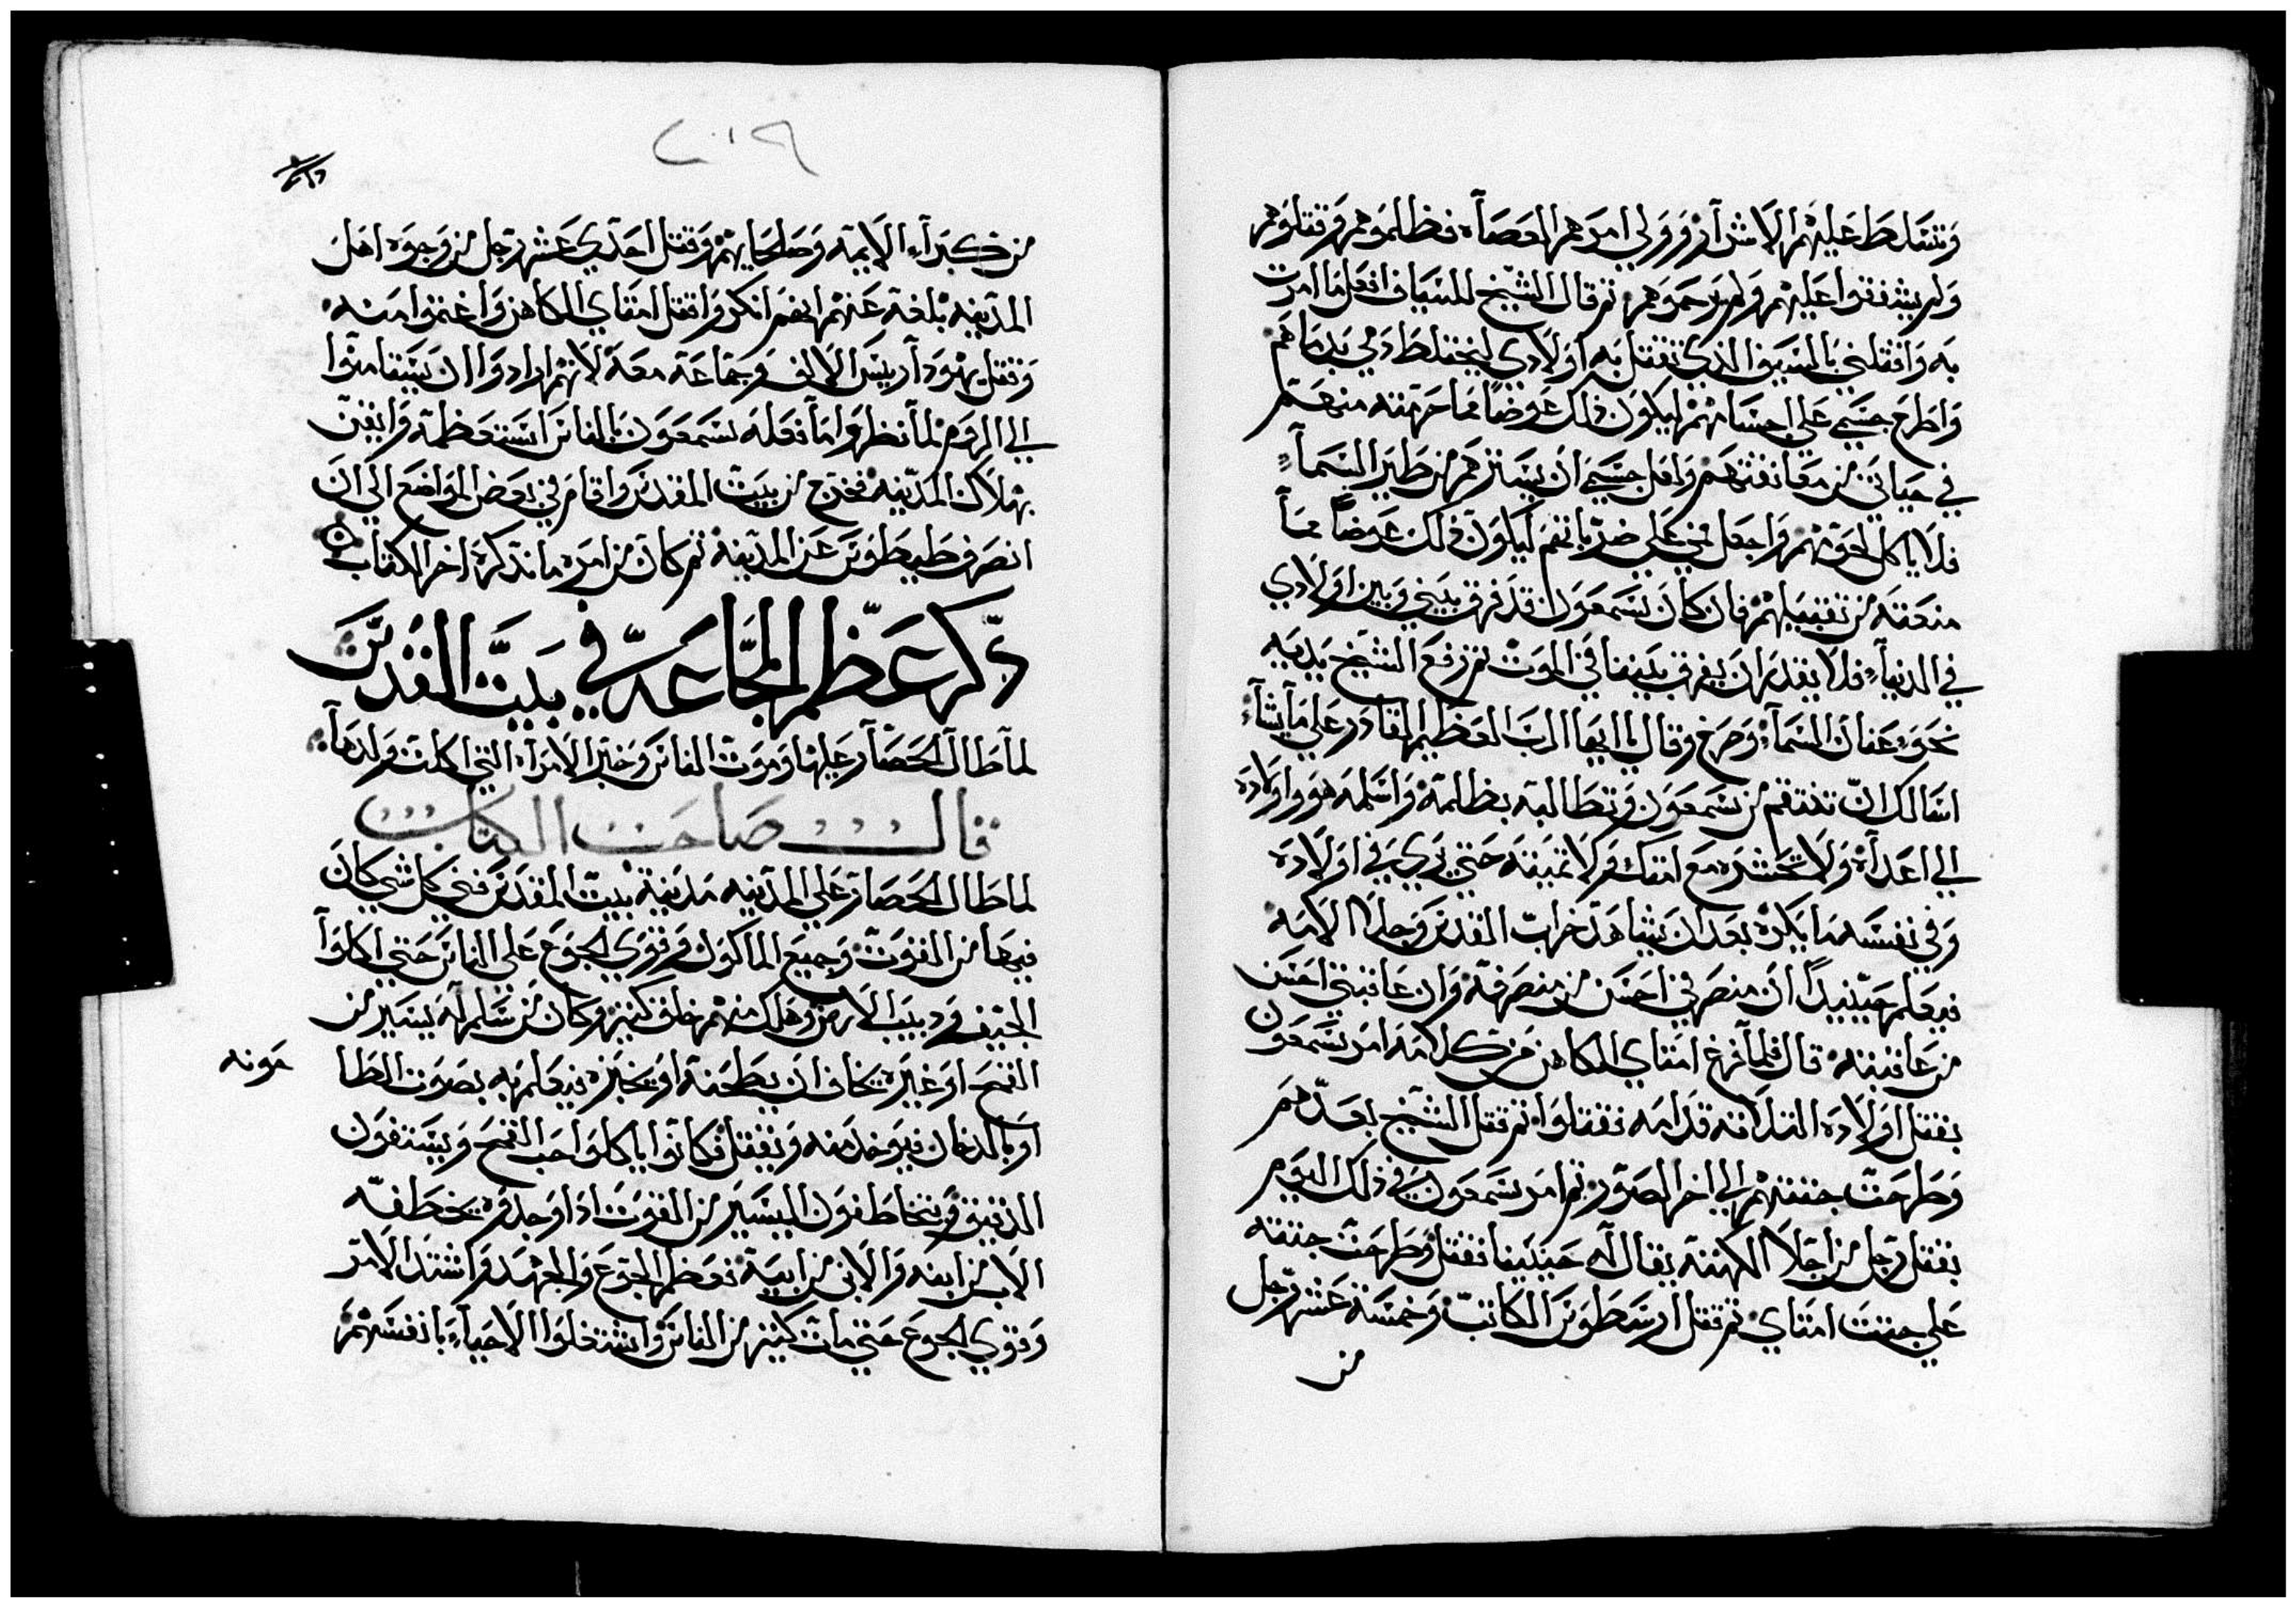 وتتسلط عليهم الاشرار وولي امرهم العصاه فظلموهم وقتلوهم
ولم يشفقوا عليهم ولم يرحموهم ثم قال الشيخ للسياف افعل ما امرت
به واقتلني بالسيف الذي تقتل به اولادي ليختلط دمي بدماهم
واطرح جسمي علي اجسامهم ليكون ذلك عوضاً مما حرمته منهم
في حياتي من معانقتهم ولعل جسمي ان يسترهم من طير السماءِ
فلا ياكل لحومهم واجعل فمي علي افمامهم ليكون ذلك عوضاً مما
منعته من تقبيلهم فان كان شمعون قد فرق بيني وبين اولادي
في الدنياء فلا يقدر ان يفرق بيننا في الموت ثم رفع الشيخ يديه
نحو عنان السماء وصرخ وقال يا ايها الرب العظيم القادر علي ما يشاء
اسالك ان تنتقم من شمعون وتطالبه بظلمه واسلمه هو واولاده
الي اعداه ولا تحشره مع امتك ولا تميته حتي يري في اولاده
وفي نفسه ما يكره بعد ان يشاهد خراب القدس وجلا الامه
فيعلم حينيداً ان منصرفي احسن من منصرفه وان عاقبتي احسن
من عاقبته قال فلما فرغ امتاي الكاهن من كلامه امر شمعون
بقتل اولاده التلاته قدامه فقتلوا ثم قتل الشيخ بعدهم
وطرحت جتتهم الي اخر الصور ثم امر شمعون في ذلك اليوم
بقتل رجل من اجلا الكهنه يقال له حينينا فقتل وطرحت جتته
علي جتت امتاي ثم قتل ارسطوس الكاتب وخمسة عشر رجل
من
٢٠١٩
من كبراء الايمه وصلحايهم وقتل احدي عشر رجل من وجوه اهل
المدينه بلغه عنهم انهم انكروا قتل امتاي الكاهن واغتموا منه
وقتل يهودا ريس الالف وجماعه معه لانهم ارادوا ان يستامنوا
الي الروم فلما نظروا ما فعله شمعون بالناس استعظمه وايقن
بهلاك المدينه فخرج من بيت المقدس واقام في بعض المواضع الي ان
انصرف طيطوس عن المدينه ثم كان من امره ما نذكره اخر الكتاب
ذكر عظم المجاعه في بيت القدس
لما طال الحصار عليها وموت الناس وخبر الامراه التي اكلت ولدها
قال صاحب الكتاب
لما طال الحصار علي المدينه مدينة بيت المقدس فني كل شي كان
فيها من القوت وجميع الماكول وقوي الجوع علي الناس حتي اكلوا
الجيف ودبيب الارض وهلك منهم خلق كتير وكان من سلم له يسير من
القمح او غيره يخاف ان يطحنه او يخبزه فيعلم به بصوت الطا
حونه
او بالدخان فيوخد منه ويقتل فكانوا ياكلوا حب القمح ويستفون
الدقيق ويتخاطفون اليسير من القوت ادا وجدوه يخطفه
الاب من ابنه والابن من ابيه فعظم الجوع والجهد واشتد الامر
وقوي الجوع حتي مات كتير من الناس واشتغلوا الاحياء بانفسهم